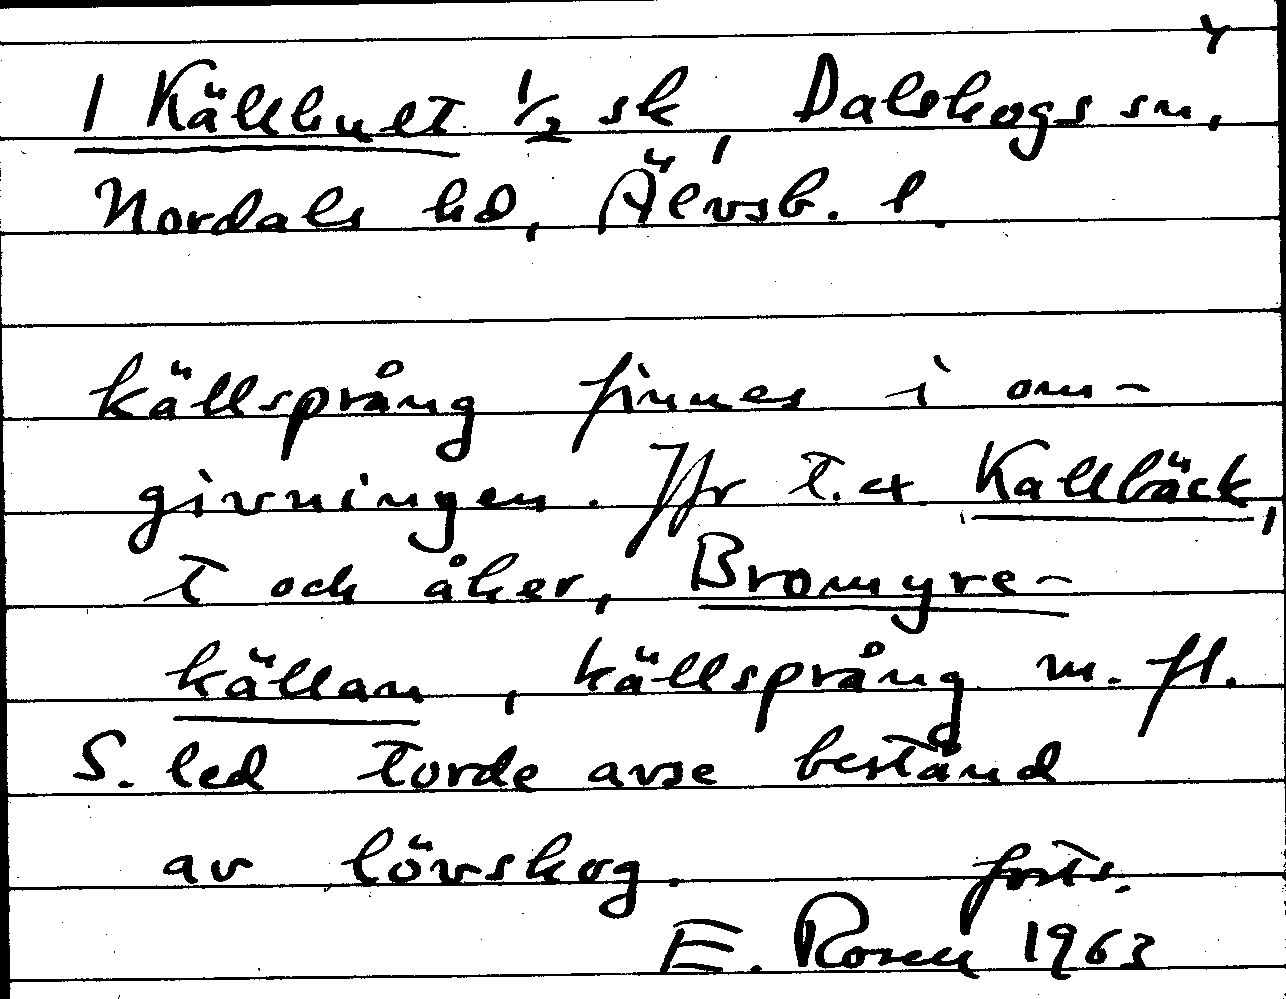 4
1 Källhult 1/2 sk, Dalskogs sn,
Nordals hd, Älvsb. l.
källsprång finnes i om-
givningen. Jfr t.ex Kallbäck,
t och åker, Bromyre-
källan, källsprång m. fl.
S. led torde avse bestånd
av lövskog. forts.
E. Rosell 1963